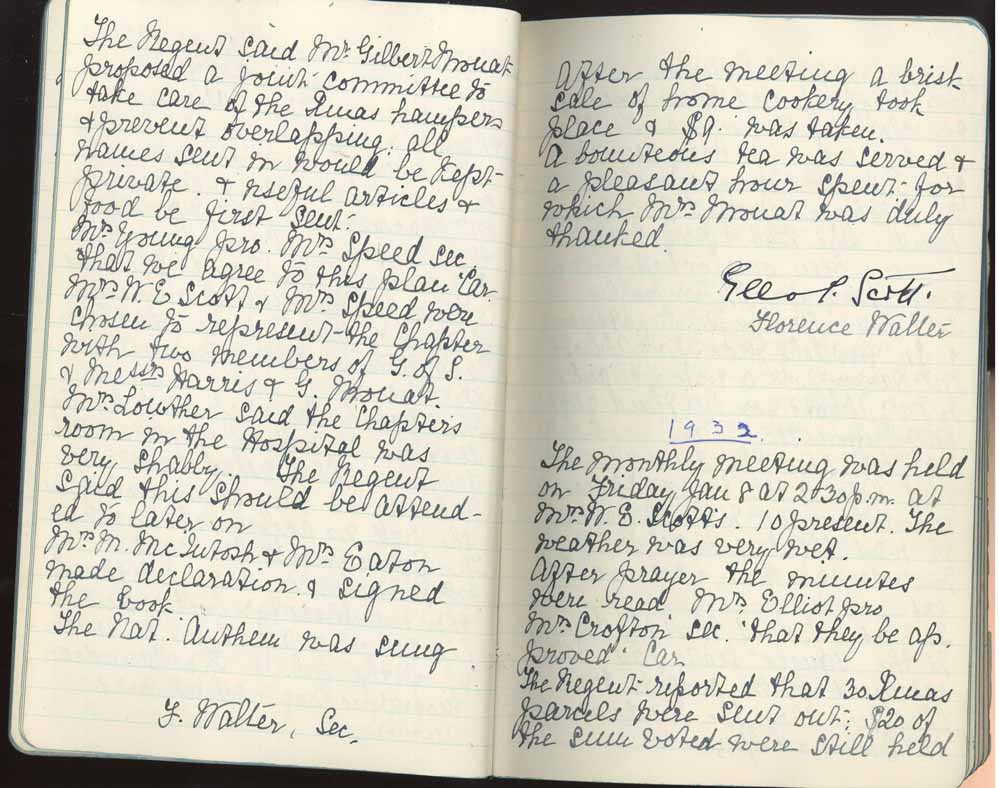 The Regent said Mr Gilbert Mouat
proposed a joint committee to
take care of the Xmas hampers
& prevent overlapping. all
names sent in would be kept
private. & useful articles &
food be first sent.
Mrs Young pro. Mrs Speed sec.
that we agree to this plan Car.
Mrs W. E Scott & Mrs Speed were
chosen to represent the Chapter
with two members of G. of S.
& Messrs Harris & G. Mouat.
Mrs Lowther said the Chapters
room in the Hospital was
very shabby. The Regent
said this should be attend-
ed to later on
Mrs M. McIntosh & Mrs Eaton
made declaration & signed
the book
The Nat. Anthem was sung.
F. Walter, Sec.
After the meeting a brisk
sale of home cookery took
place & $9. was taken.
A bounteous tea was served &
a pleasant hour spent for
which Mrs Mouat was duly
thanked.
Scott.
Florence Walter
1932.
The monthly meeting was held
on Friday Jan 8 at 2.30 p.m. at
Mrs W. E. Scott's. 10 present. The
weather was very wet.
After prayer the minutes
were read Mrs Elliot pro
Mrs Crofton sec. "that they be ap-
proved" Car.
The Regent reported that 30 Xmas
parcels were sent out; $20 of
the sum voted were still held